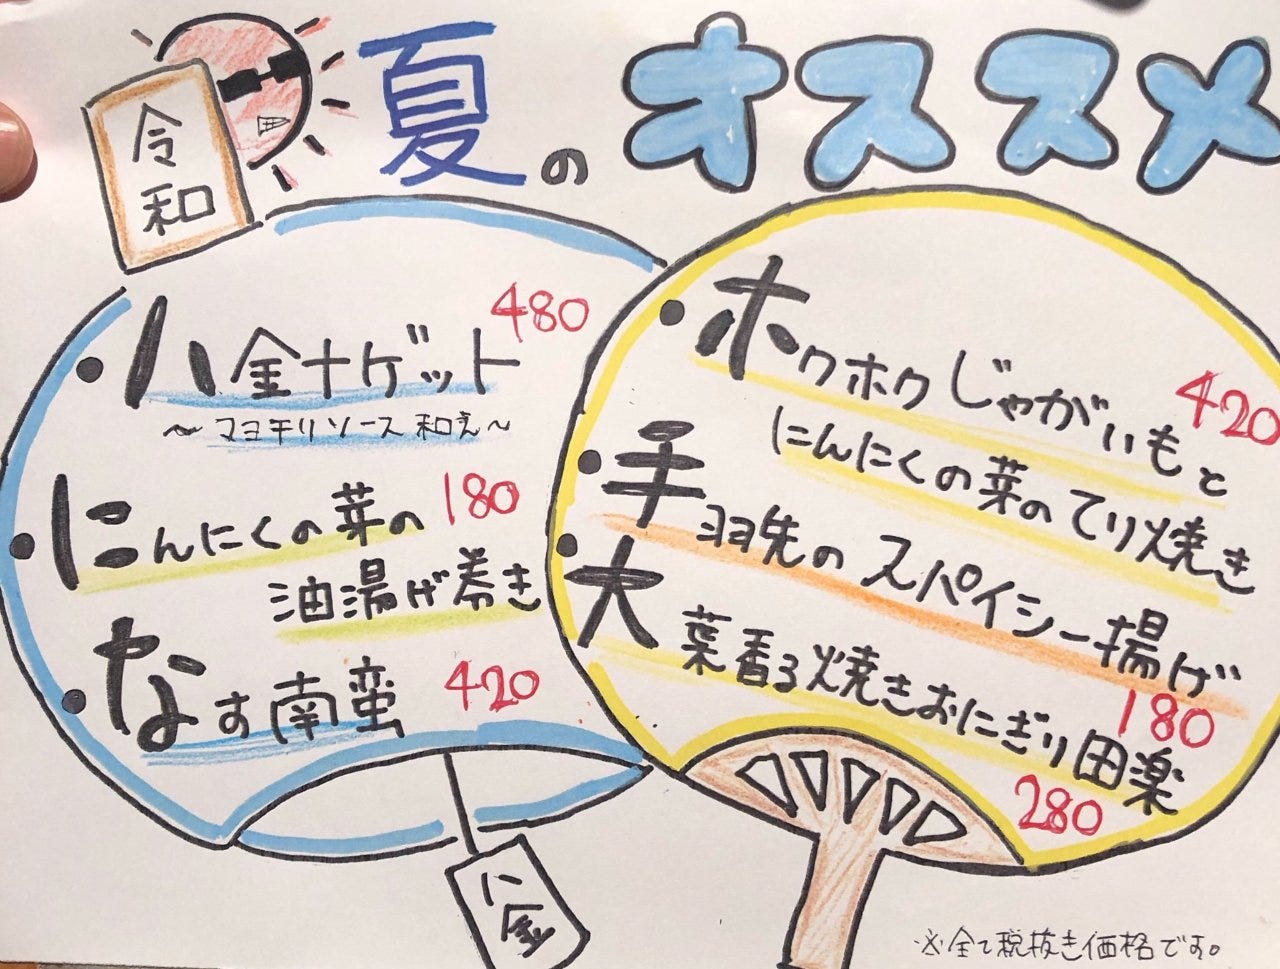 令和
夏のオススメ
・ハ金ナゲット 480
～マヨチリソース和え～
・にんにくの芽の 180
油揚げ巻き
・なす南蛮 420
・ホクホクじゃがいもと 420
にんにくの芽のてり焼き
・手羽先のスパイシー揚げ
180
・大葉香る焼きおにぎり田楽
280
ハ金
※全て税抜き価格です。